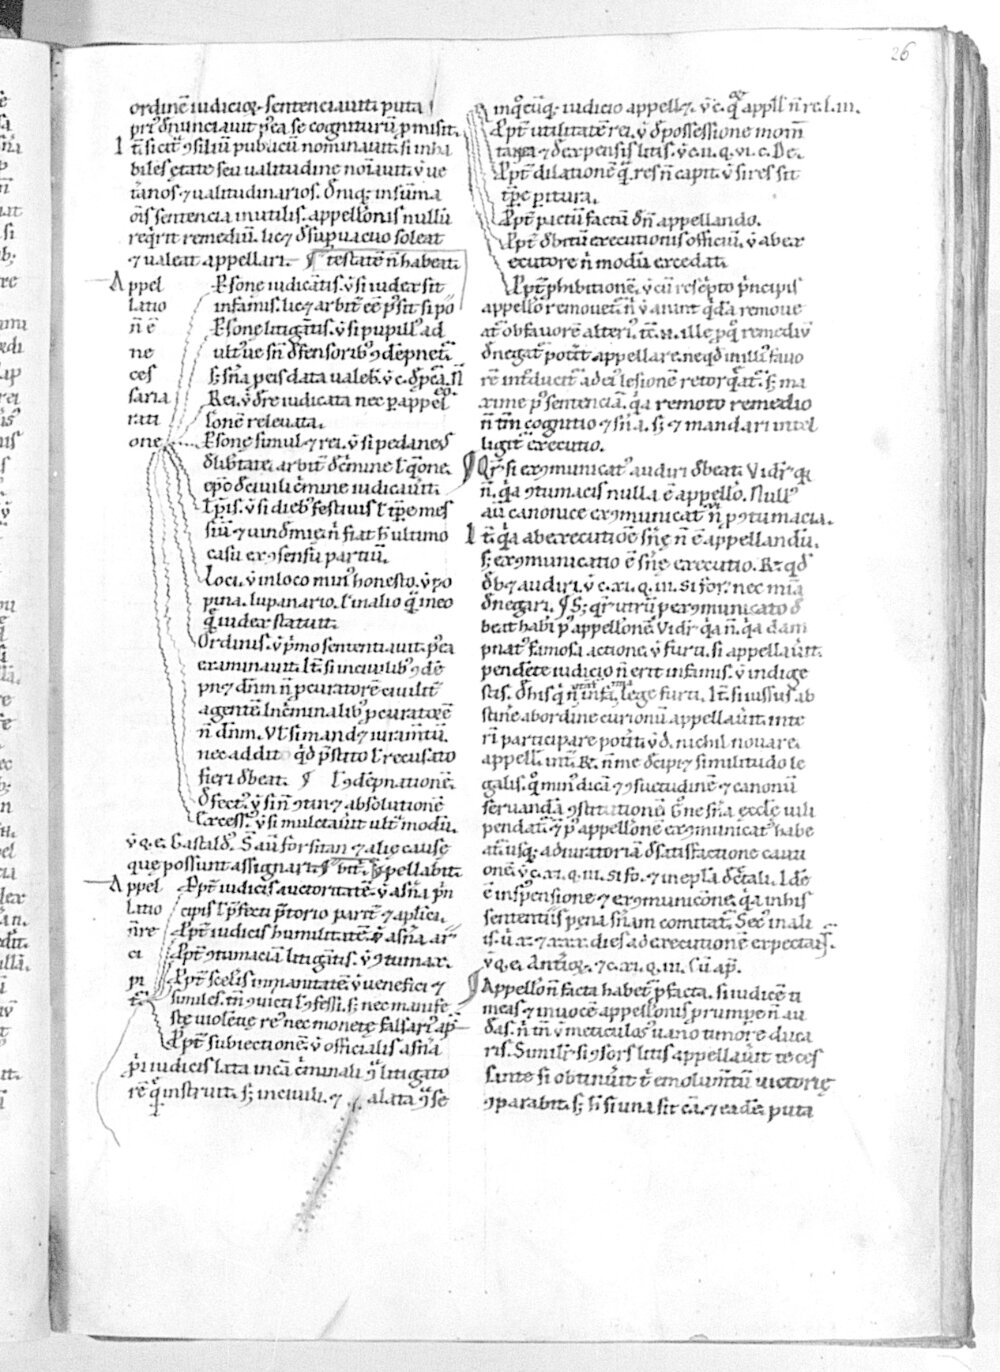 26
ordinē iudicioꝝ. sentenciauit. puta
p̄r̄ d̄nunciauit pꝯea se cogniturū ꝓmisit.
It̄ sicut ꝯsiliū publicū nominauit. si inha
biles ętate seu ualitudine noīauit. ꝟ ue
t̄anos ⁊ ualitudinarios. d̄niqꝫ in sūma
oīs sentencia inutilis. appellonis nullū
reqͥrit remediū. lic⁊ d̄ suꝑuacuo soleat
⁊ ualeat appellari. testatē n̄ habeat.
Appel
latio
n̄ ē
ne
ces
saria
rati
one
ꝑsone iudicantis. ꝟ si iudex sit
infamis. lic⁊ arbit̄ eē p̄sit si po
ꝑsonę litigātis. ꝟ si pupill' ad
ult' ue sn̄ d̄fensoribꝰ ꝯdēpnet̄.
Rei. ꝟ d̄ re iudicata nec ꝑ appel
lonē releuata.
ꝑsonę simul ⁊ rei. ꝟ si pedaneꝰ
d̄ lib̄tate. arbit̄ d̄ cͥmine l' qͣone.
epͦ d̄ ciuili cͥmine iudicauit.
tꝑis. ꝟ si diebꝰ festiuis l' tꝑe mes
siū ⁊ uindemię n̄ fiat h̄ ultimo
casu ex ꝯsensu partiū.
Loci. ꝟ in loco minꝰ honesto. ꝟ ꝓ
pina. lupanario. l' in alio qͣm in eo
qͦ iudex statuit.
Ordinis. ꝟ pͥmo sententiauit. pꝯea
examinauit. It̄ si in ciuilibꝰ ꝯdē
pn⁊ dn̄m n̄ ꝓcuratorē ciuilit̄
agentē. l' in cͥminalibꝰ ꝓcuratorē
n̄ dn̄m. Vl' si mand⁊ iuram̄tū.
nec addit qͥd p̄stito l' recusato
fieri d̄beat. l' ꝯdēpnationē.
d̄fectꝰ. ꝟ si n̄ ꝯtin⁊ absolutionē
Excessꝰ. ꝟ si mulctauit ult̄ modū.
ꝟ. q. e. Gastaldꝰ. S; aū forsitan ⁊ alię causę
quę possunt assignari.
Appel
latio
n̄ re
ci
pi
t̄
ꝓpt̄ iudicis auctoritatē. ꝟ a sn̄a pͥn
cipis l' p̄fecti p̄torio
ꝓpt̄ iudicis humilitatē. ꝟ a sn̄a ar
ꝓpt̄ ꝯtumaciā litigātis. ꝟ ꝯtumax.
ꝓpt̄ scelis immanitatē. ꝟ uenefici ⁊
similes. tn̄ ꝯuicti l' ꝯfessi. sꝫ nec manife
stę uiolētię reꝰ nec monetę falsariꝰ
ꝓpt̄ subiectionē. ꝟ officialis a sn̄a
pͥ iudicis lata in cā cͥminali ꝯ litigato
rē qͣm instruit. sꝫ in ciuili. ⁊ alata ꝯ se
in qͦcūqꝫ iudicio appell⁊. ꝟ. c. qͦꝝ appll' n̄ re. l. iii.
ꝓpt̄ utilitatē rei. ꝟ d̄ possessione mom̄
tanea ⁊ d̄ expensis litis. ꝟ. c. ii. q. vi. c. De.
ꝓpt̄ dilationē qͣ res n̄ capit. ꝟ si res sit
tꝑe ꝑitura.
ꝓpt̄ pactū factū d̄ n̄ appellando.
ꝓpt̄ d̄bitū executionis officiū. ꝟ ab ex
ecutore n̄ modū excedat.
ꝓpt̄ ꝓhibitionē. ꝟ cū rescͥpto pͥncipis
appello remouet̄. n̄ ꝟ aiunt qͥda remoue
at̄ ob fauorē alteriꝰ. tc̄. n. ille ꝓ qͦ remediū
d̄negat̄ potit̄ appellare. neqͦd in illiꝰ fauo
rē introducit̄ ad ei' lesionē retorqͣt̄. sꝫ ma
xime pꝰ sentenciā. qͣ a remoto remedio
n̄ tm̄ cognitio ⁊ sn̄a. sꝫ ⁊ mandari intel
ligit̄ executio.
Qr̄ si exꝯmunicatꝰ audiri d̄beat. Vidr̄ qͥ
n̄. qͣ ꝯtumacis nulla ē appello. Nullꝰ
aū canonice exꝯmunicat̄ n̄ p ꝯtumacia.
It̄ qͣ ab executiōe sn̄ę n̄ ē appellandū.
sꝫ exꝯmunicatio ē sn̄ę executio. R. qͦd
d̄b⁊ audiri. ꝟ. c. xi. q. iii. Si for. nec mīa
d̄negari. S; qr̄ utrū ꝑ exꝯmunicato d̄
beat habi' pꝰ appellonē. Vidr̄ qͣ n̄. qͣ dam
pnatꝰ famosa actione. ꝟ furti. si appellau͛it.
pendēte iudicio n̄ erit infamis. ꝟ in dige
stis. d̄ hisqͥ n̄ infā. lege furti. It̄ si iussus ab
stinē ab ordine curionū appellau͛it. inte
ri participare potit. ꝟ d̄. nichil nouare.
appell. int̄. R. n̄ me decip⁊ similitudo le
galis. qͦm in d̄ica ꝯsuetudinē ⁊ canonū
seruandā ꝯstitutionē. Ōne sn̄a ęcclę uili
pendat̄ ⁊ pꝰ appellonē exꝯmunicatꝰ habe
at̄ usqꝫ ad iuratoriā d̄ satisfactione cauti
onē. ꝟ. c. xi. q. iii. si fo. ⁊ in ep̄la d̄ctali. Idē
ē in suspensione ⁊ exꝯmunicōne. qͣ in his
sententiis pena sn̄am comitat̄. Secꝰ in ali
is. ū. x. ⁊ xxx. dies ad executionē expectat̄.
ꝟ. q. e. Antiqͦꝝ. ⁊ c. xi. q. iii. Cū ap̄.
Appellon̄ facta habet̄ ꝓ facta. si iudicē ti
meas ⁊ in uocē appellonis prumpe n̄ au
d̄as. n̄ tn̄ ꝟ meticulosꝰ uano timore duca
ris. Similr̄ si ꝯsors litis appellau͛it te ces
sante si obtinu͛it t̄ emolum̄tū uictorię
ꝯparabit. sꝫ h̄ si una sit cā. ⁊ eadē. puta